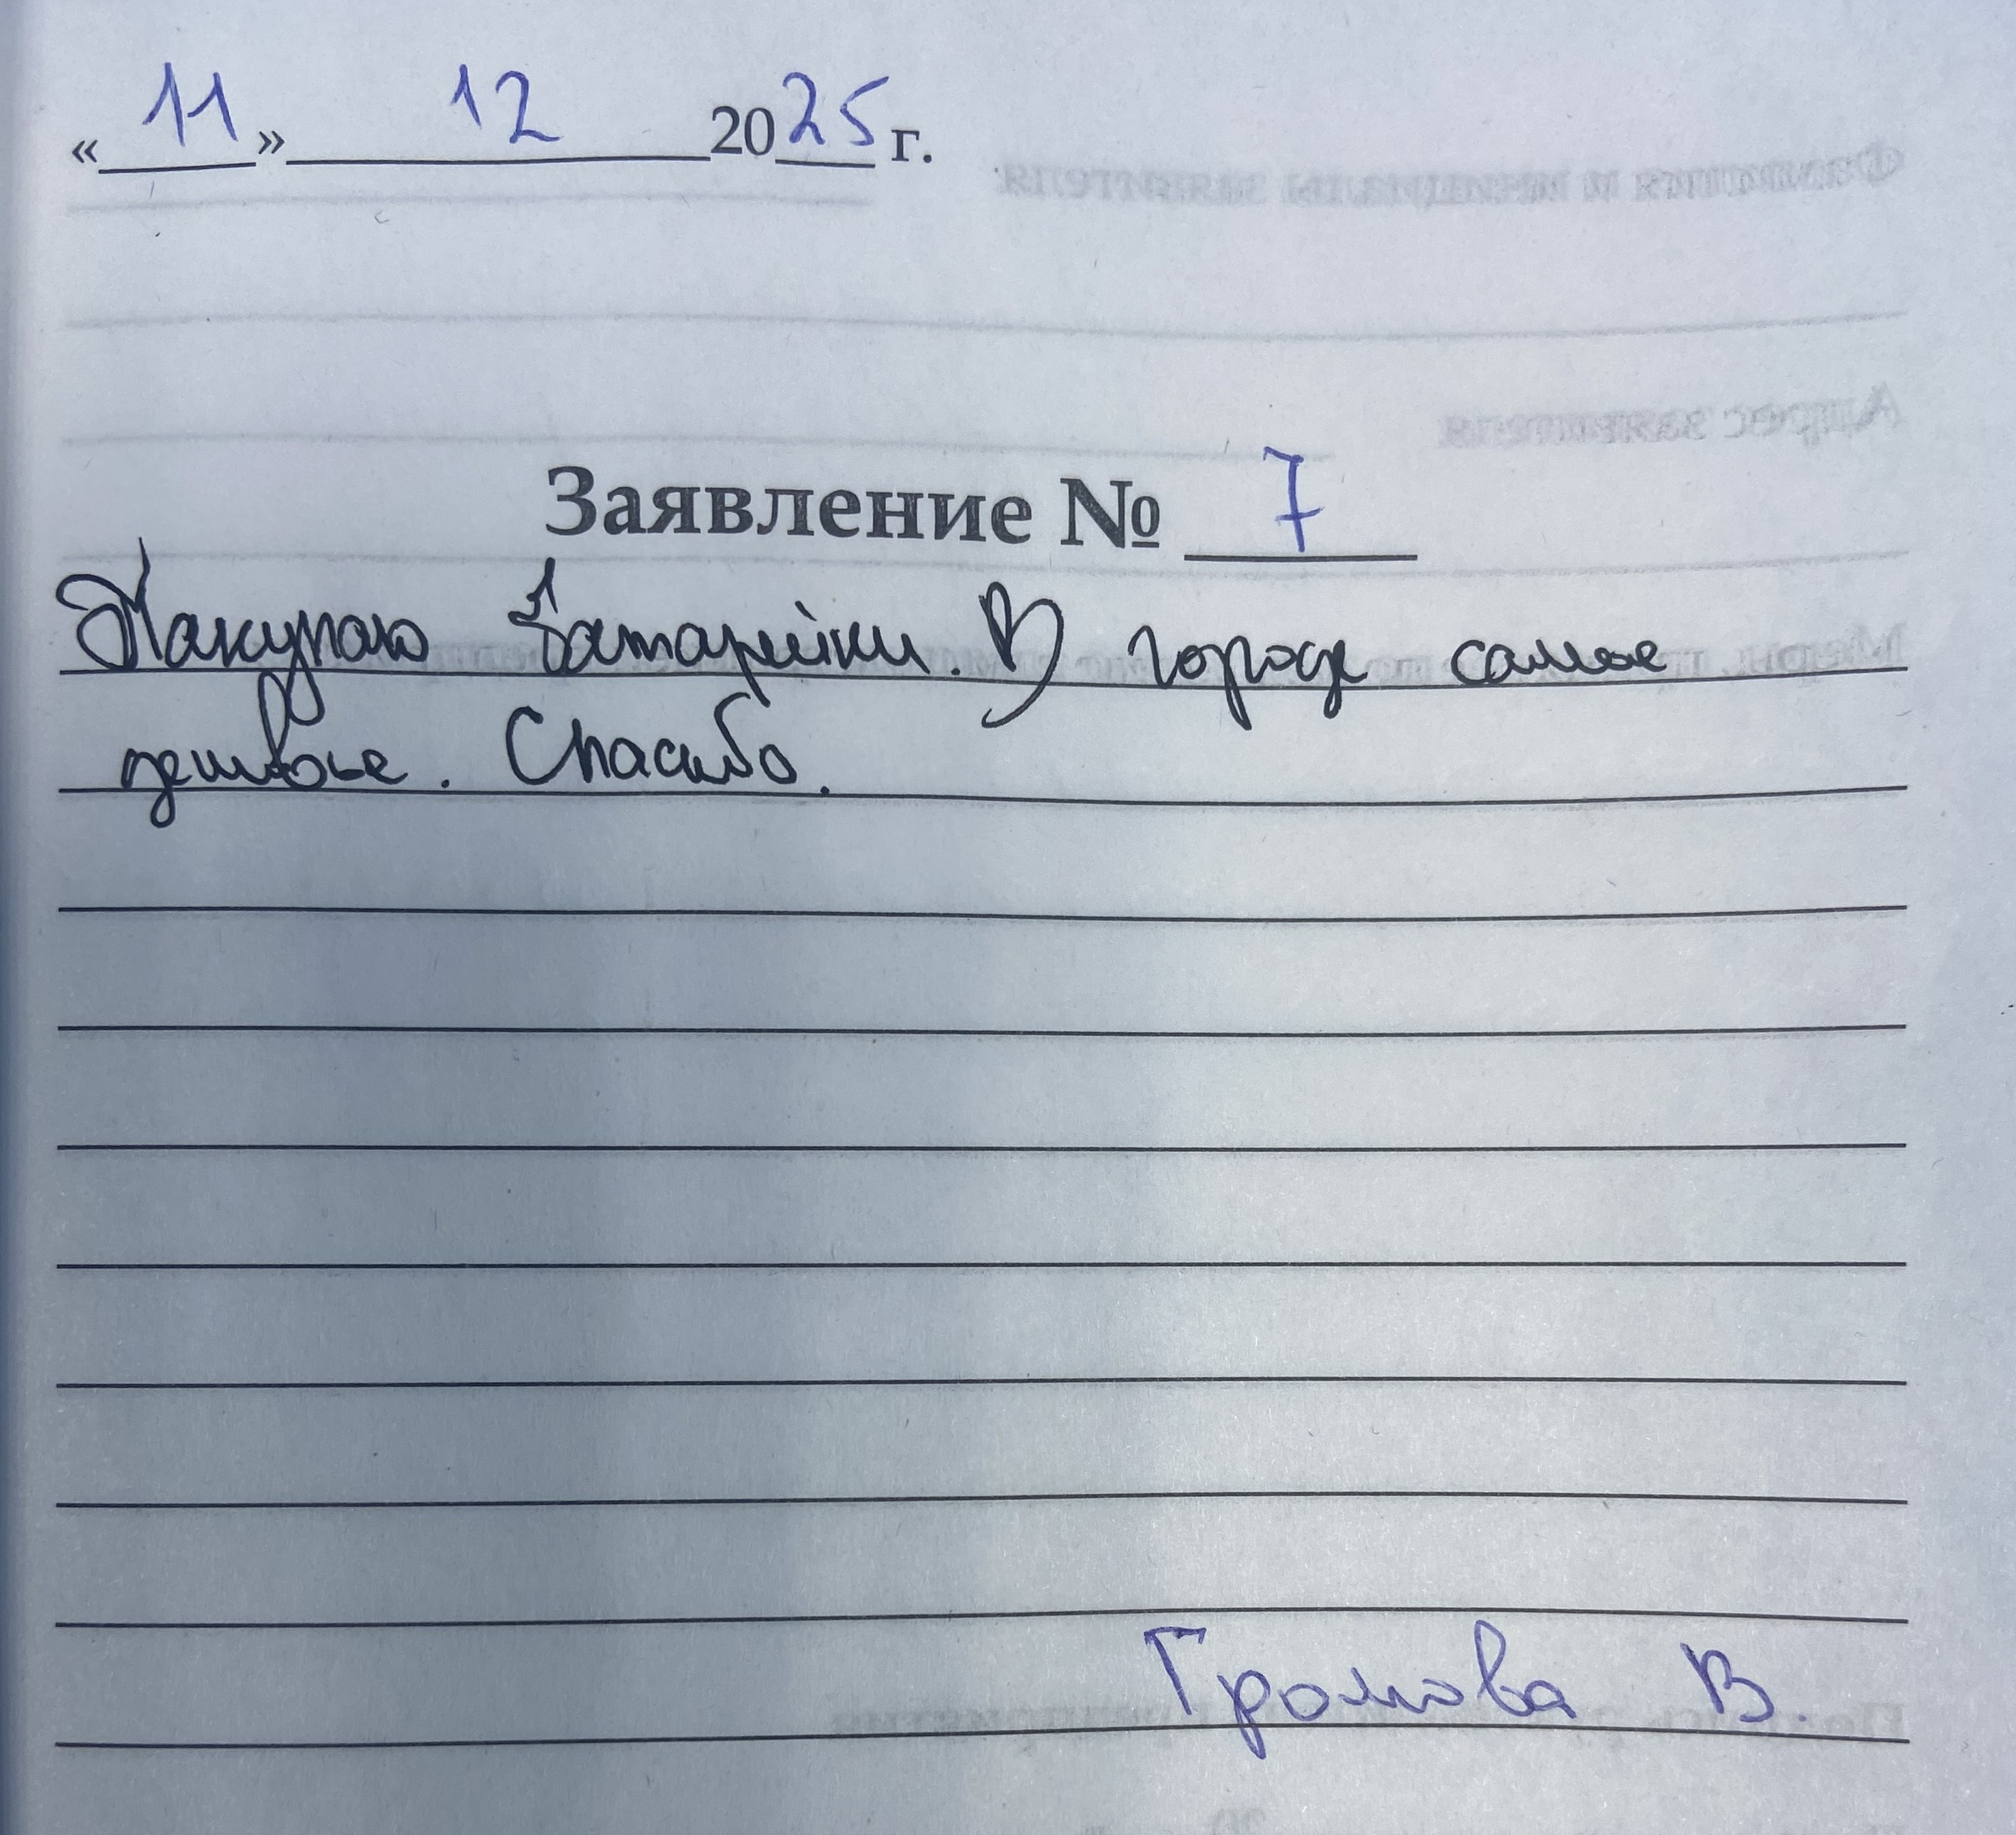 «11» 12 2025 г.
Заявление № 7
Покупаю батарейки. В городе самые
дешёвые. Спасибо.
Громова В.